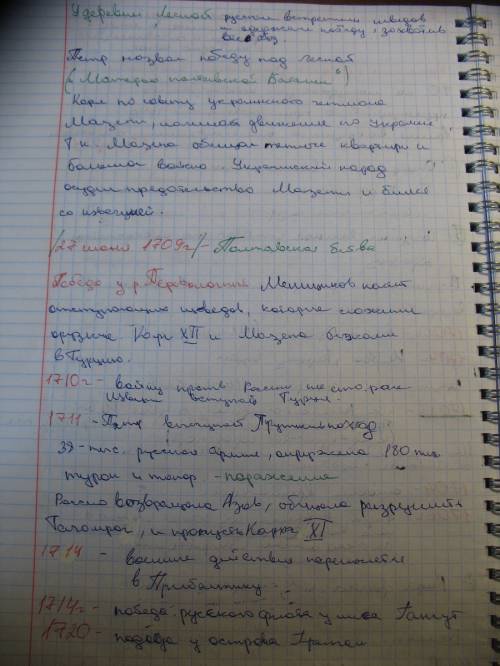 У деревни Лесной русские встретили шведов
и одержали победу, захватив
весь обоз
Петр назвал победу под Лесной
("Матерью полтавской баталии")
Карл по совету украинского гетмана
Мазепы, начинает движение по Украине
Т к Мазепа обещал теплые квартиры и
Украинский народ
осудил предательство Мазепы и бился
со шведами.
/27 июня 1709г/ - Полтавская б-ва
Победа у р. Переволочна Меншиков
отступающих шведов, которые сложили
оружие Карл XII и Мазепа бежали
в Турцию.
1710г - войну против России на стороне
вступает Турция.
1711 - Петр Прутский поход
39-тыс. русская армия, окружена 180 тыс
турок и татар - поражение
Россия возвращала Азов, обещала разрушить
Таганрог, и пропустить Карла XI
1714 - военные действия
в Прибалтику.
1714г - победа русского флота у мыса Гангут
1720 - победа у острова Гренгам